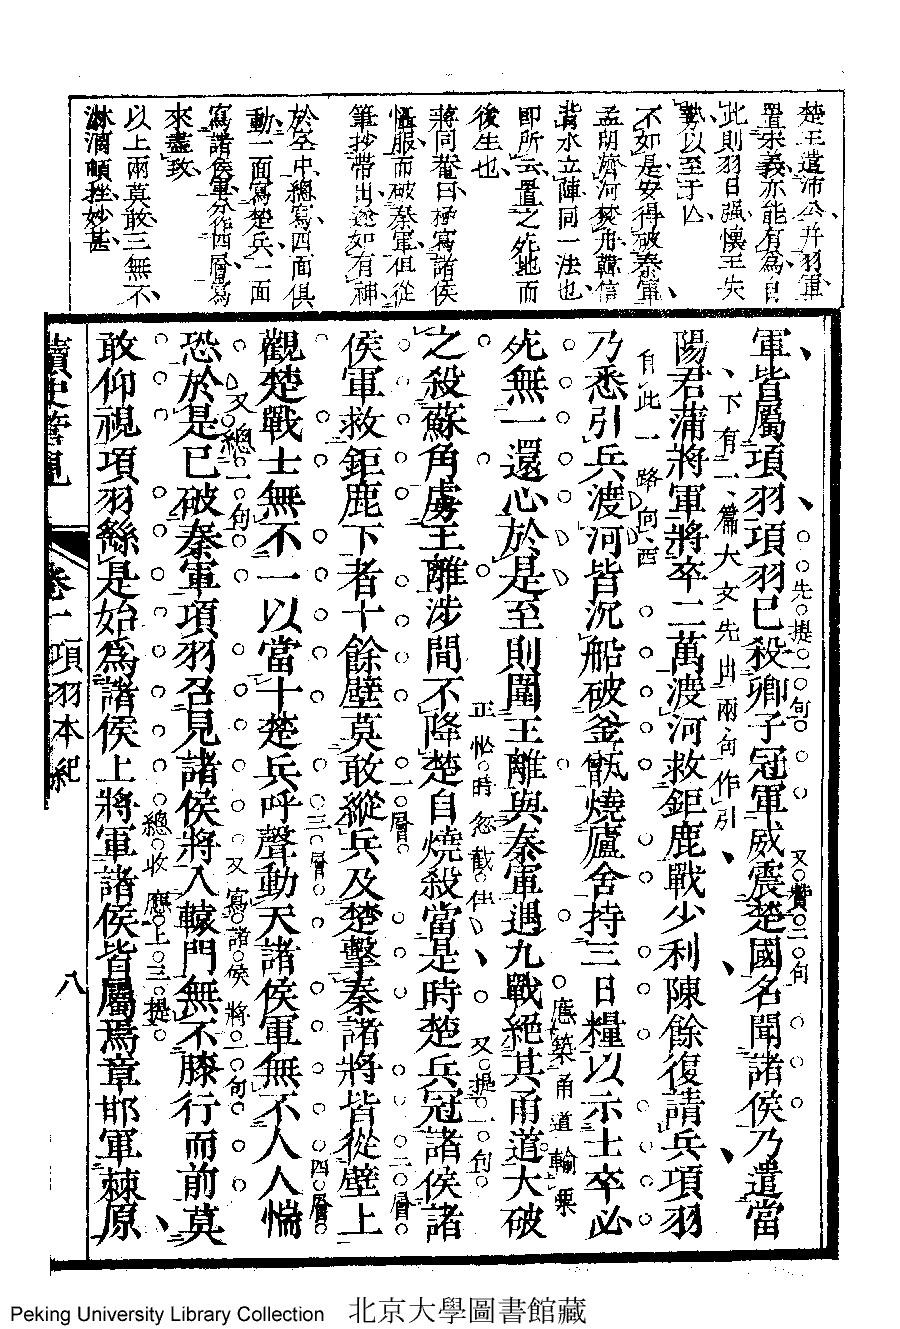 楚王遣沛公并羽軍
置宋義亦能有為自
此則羽日强懷王失
勢以至于亾
不如是安得破秦軍
孟明濟河焚舟韓信
背水立陣同一法也
即所云置之死地而
後生也
蔣同菴曰極寫諸侯
慴服而破秦軍俱從
筆抄帶出遂如有神
於空中總寫四面俱
動一面寫楚兵一面
寫諸侯軍分作四層寫
來盡致
以上兩莫敢三無不
淋漓頓挫妙甚
軍皆屬項羽項羽已殺卿子冠軍威震楚國名聞諸侯乃遣當
先提一句
又贊二句
下有二篇大文先出兩句作引
陽君蒲將軍將卒二萬渡河救鉅鹿戰少利陳餘復請兵項羽
自此一路向西
乃悉引兵渡河皆沉船破釜甑燒廬舍持三日糧以示士卒必
應築甬道輸粟
死無一還心於是至則圍王離與秦軍遇九戰絕其甬道大破
正忙時忽截住
又提一句
之殺蘇角虜王離涉間不降楚自燒殺當是時楚兵冠諸侯諸
一層
二層
侯軍救鉅鹿下者十餘壁莫敢縱兵及楚擊秦諸將皆從壁上
三層
四層
觀楚戰士無不一以當十楚兵呼聲動天諸侯軍無不人人惴
又總一句
又寫諸侯將一句
恐於是已破秦軍項羽召見諸侯將入轅門無不膝行而前莫
總收應上三提
敢仰視項羽繇是始爲諸侯上將軍諸侯皆屬焉章邯軍棘原
讀史管見
卷一 項羽本紀
八
Peking University Library Collection 北京大學圖書館藏